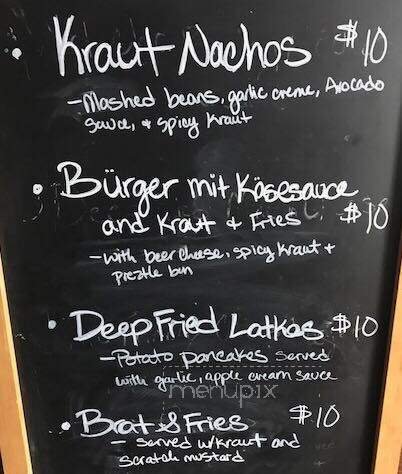 • Kraut Nachos $10
- Mashed beans, garlic creme, Avocado
sauce, & spicy kraut
• Bürger mit Käsesauce
and Kraut & Fries $10
- with beer cheese, spicy kraut +
preztle bun
• Deep Fried Latkas $10
- Potato pancakes served
with garlic, apple cream sauce
menupix
• Brat & Fries $10
- served w/kraut and
scratch mustard